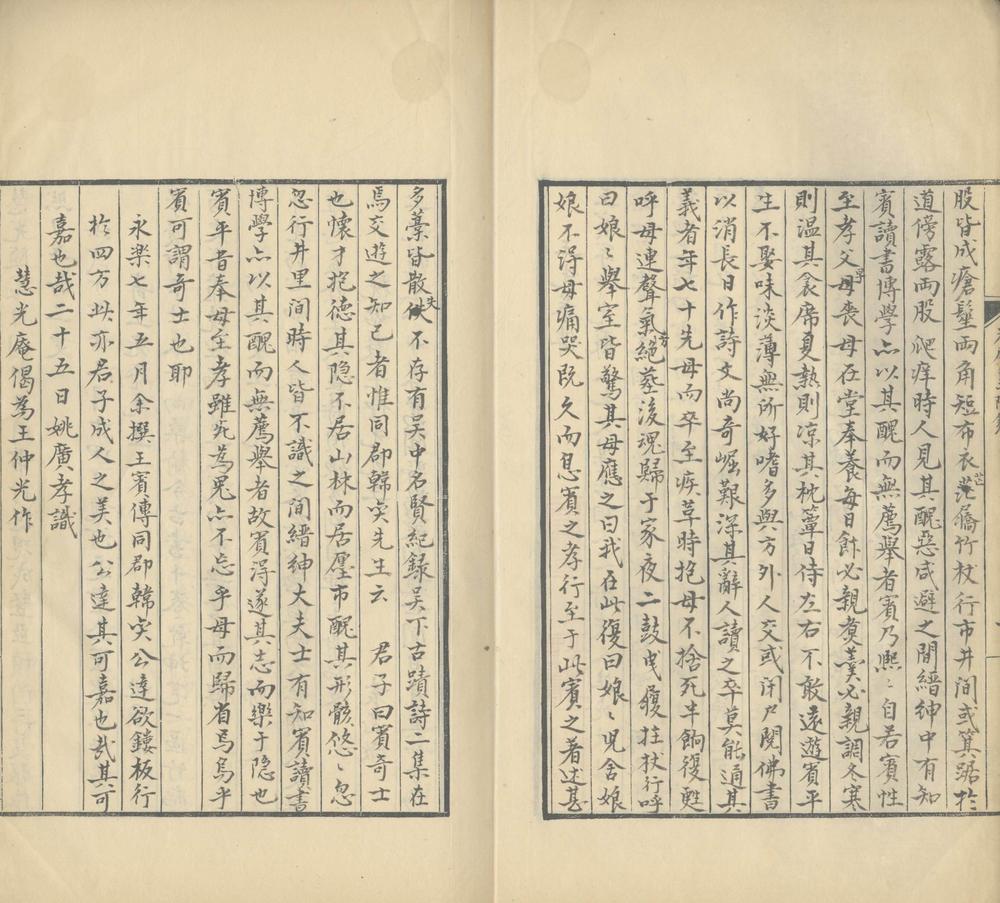 股皆成瘡髽兩角短布衣芒屩竹杖行市井間或箕踞於
道傍露兩股爬痒時人見其醜惡咸避之間縉紳中有知
賓讀書博學亦以其醜而無薦舉者賓乃熈〻自若賓性
至孝父早喪母在堂奉養每日飰必親煑羮必親調冬寒
則温其衾席夏熱則凉其枕簟日侍左右不敢遠遊賓平
生不娶味淡薄無所好嗜多與方外人交或闭户閱佛書
以消長日作詩文尚奇崛艱深其辭人讀之卒莫能通其
義者年七十先母而卒至疾革時抱母不捨死半餉復甦
呼母連聲氣方絕葬後魂歸于家夜二鼓曳履拄杖行呼
曰娘〻舉室皆驚其母應之曰我在此復曰娘〻児舍娘
娘不得母痛哭既久而息賓之孝行至于此賓之著述甚
多藁皆散失不存有吴中名賢紀録吴下古蹟詩二集在
焉交遊之知己者惟同郡韓奕先生云　君子曰賓奇士
也懷才抱德其隐不居山林而居㕓市醜其形骸悠〻忽
忽行井里間時人皆不識之間縉紳大夫士有知賓讀書
博學亦以其醜而無薦舉者故賓得遂其志而樂于隐也
賓平昔奉母至孝雖死為鬼亦不忘乎母而歸省烏乎
賓可謂奇士也耶
永樂七年五月余撰王賓傳同郡韓奕公達欲鏤板行
於四方此亦君子成人之美也公達其可嘉也哉其可
嘉也哉二十五日姚廣孝識
慧光庵偈為王仲光作